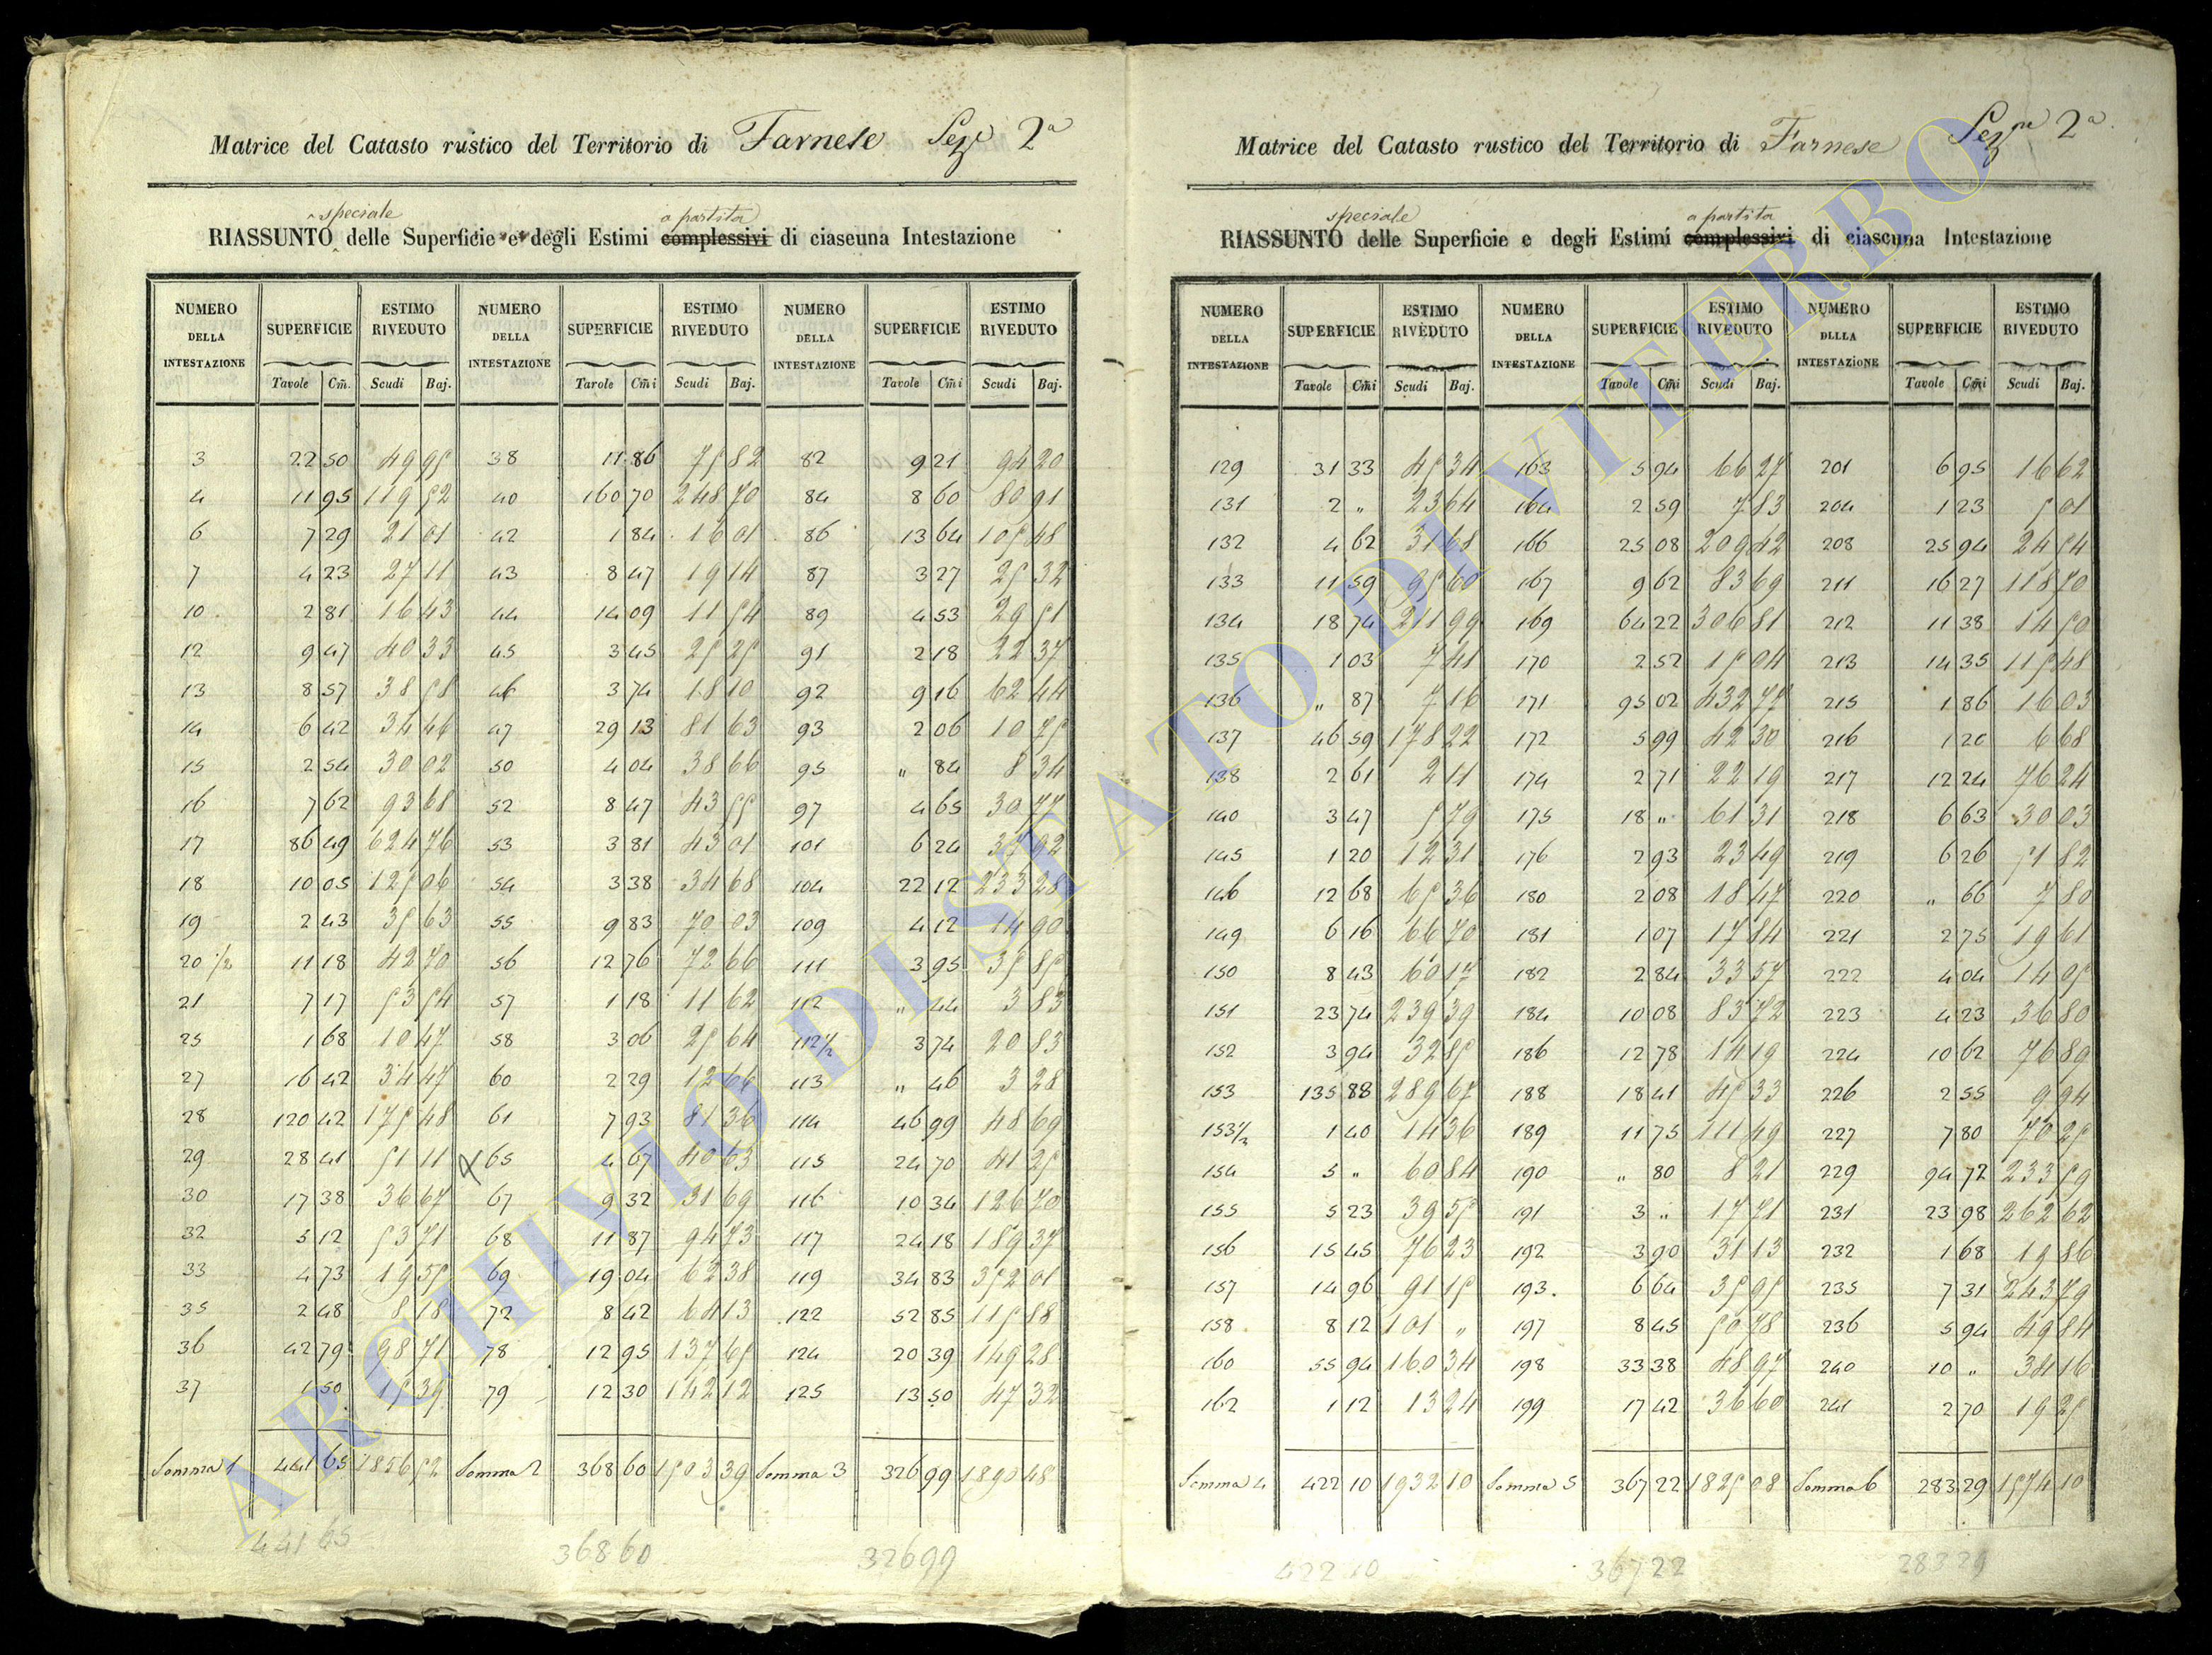 Matrice del Catasto rustico del Territorio di Farnese Sez.e 2a
RIASSUNTO speciale delle Superficie e degli Estimi complessivi a partita di ciaseuna Intestazione
NUMERO DELLA INTESTAZIONE SUPERFICIE ESTIMO RIVEDUTO NUMERO DELLA INTESTAZIONE SUPERFICIE ESTIMO RIVEDUTO NUMERO DELLA INTESTAZIONE SUPERFICIE ESTIMO RIVEDUTO
Tavole Cm̃. Scudi Baj. Tavole Cm̃i Scudi Baj. Tavole Cm̃i Scudi Baj.
3 22 50 49 95 38 11 86 75 82 82 9 21 94 20
4 11 95 119 52 40 160 70 248 70 84 8 60 80 91
6 7 29 21 01 42 1 84 16 01 86 13 64 105 48
7 4 23 27 11 43 8 47 19 14 87 3 27 25 32
10 2 81 16 43 44 14 09 11 54 89 4 53 29 51
12 9 47 40 33 45 3 45 25 25 91 2 18 22 37
13 8 57 38 58 46 3 74 18 10 92 9 16 62 44
14 6 42 34 46 47 29 13 81 63 93 2 06 10 75
15 2 54 30 02 50 4 04 38 66 95 „ 84 8 34
16 7 62 93 68 52 8 47 43 55 97 4 65 30 77
17 86 49 624 76 53 3 81 43 01 101 6 24 37 92
18 10 05 125 06 54 3 38 34 68 104 22 12 233 28
19 2 43 35 63 55 9 83 70 03 109 4 12 14 90
20 1/2 11 18 42 70 56 12 76 72 66 111 3 95 35 85
21 7 17 53 54 57 1 18 11 62 112 „ 44 3 83
25 1 68 10 47 58 3 06 25 64 112 1/2 3 74 20 83
27 16 42 34 47 60 2 29 12 64 113 „ 46 3 28
28 120 42 175 48 61 7 93 81 36 114 46 99 48 69
29 28 41 51 11 65 4 67 40 63 115 24 70 41 25
30 17 38 36 67 67 9 32 31 69 116 10 34 126 70
32 5 12 53 71 68 11 87 94 73 117 24 18 189 37
33 4 73 19 55 69 19 04 62 38 119 34 83 352 01
35 2 48 8 18 72 8 42 64 13 122 52 85 115 88
36 42 79 98 71 78 12 95 137 65 124 20 39 149 28
37 1 50 15 39 79 12 30 142 12 125 13 50 47 32
Somma 1 441 65 1856 52 Somma 2 368 60 1503 39 Somma 3 326 99 1890 48
441 65 368 60 326 99
Matrice del Catasto rustico del Territorio di Farnese Sezne 2a
RIASSUNTO speciale delle Superficie e degli Estimi complessivi a partita di ciascuna Intestazione
NUMERO DELLA INTESTAZIONE SUPERFICIE ESTIMO RIVEDUTO NUMERO DELLA INTESTAZIONE SUPERFICIE ESTIMO RIVEDUTO NUMERO DLLLA INTESTAZIONE SUPERFICIE ESTIMO RIVEDUTO
Tavole Cm̃i Scudi Baj. Tavole Cm̃i Scudi Baj. Tavole Cm̃i Scudi Baj.
129 31 33 45 34 163 5 94 66 27 201 6 95 16 62
131 2 „ 23 64 164 2 59 7 83 204 1 23 5 01
132 4 62 31 68 166 25 08 209 42 208 25 94 24 54
133 11 59 95 60 167 9 62 83 69 211 16 27 118 70
134 18 74 211 99 169 64 22 306 81 212 11 38 14 50
135 1 03 7 41 170 2 52 15 04 213 14 35 115 48
136 „ 87 7 16 171 95 02 432 77 215 1 86 16 03
137 46 59 178 22 172 5 99 42 30 216 1 20 6 68
138 2 61 2 11 174 2 71 22 19 217 12 24 76 24
140 3 47 5 79 175 18 „ 61 31 218 6 63 30 03
145 1 20 12 31 176 2 93 23 49 219 6 26 51 82
146 12 68 65 36 180 2 08 18 47 220 „ 66 7 80
149 6 16 66 70 181 1 07 17 84 221 2 75 19 61
150 8 43 60 17 182 2 84 33 57 222 4 04 14 05
151 23 74 239 39 184 10 08 83 72 223 4 23 36 80
152 3 94 32 85 186 12 78 14 19 224 10 62 76 89
153 135 88 289 67 188 18 41 45 33 226 2 55 9 94
153 1/2 1 40 14 36 189 11 75 111 49 227 7 80 70 25
154 5 „ 60 84 190 „ 80 8 21 229 94 72 233 59
155 5 23 39 55 191 3 „ 17 71 231 23 98 262 62
156 15 45 76 23 192 3 90 31 13 232 1 68 19 86
157 14 96 91 15 193 6 64 35 95 235 7 31 243 79
158 8 12 101 „ 197 8 45 50 78 236 5 94 49 84
160 55 94 160 34 198 33 38 48 97 240 10 „ 38 16
162 1 12 13 24 199 17 42 36 60 241 2 70 19 25
Somma 4 422 10 1932 10 Somma 5 367 22 1825 08 Somma 6 283 29 1574 10
422 10 367 22 283 29
ARCHIVIO DI STATO DI VITERBO